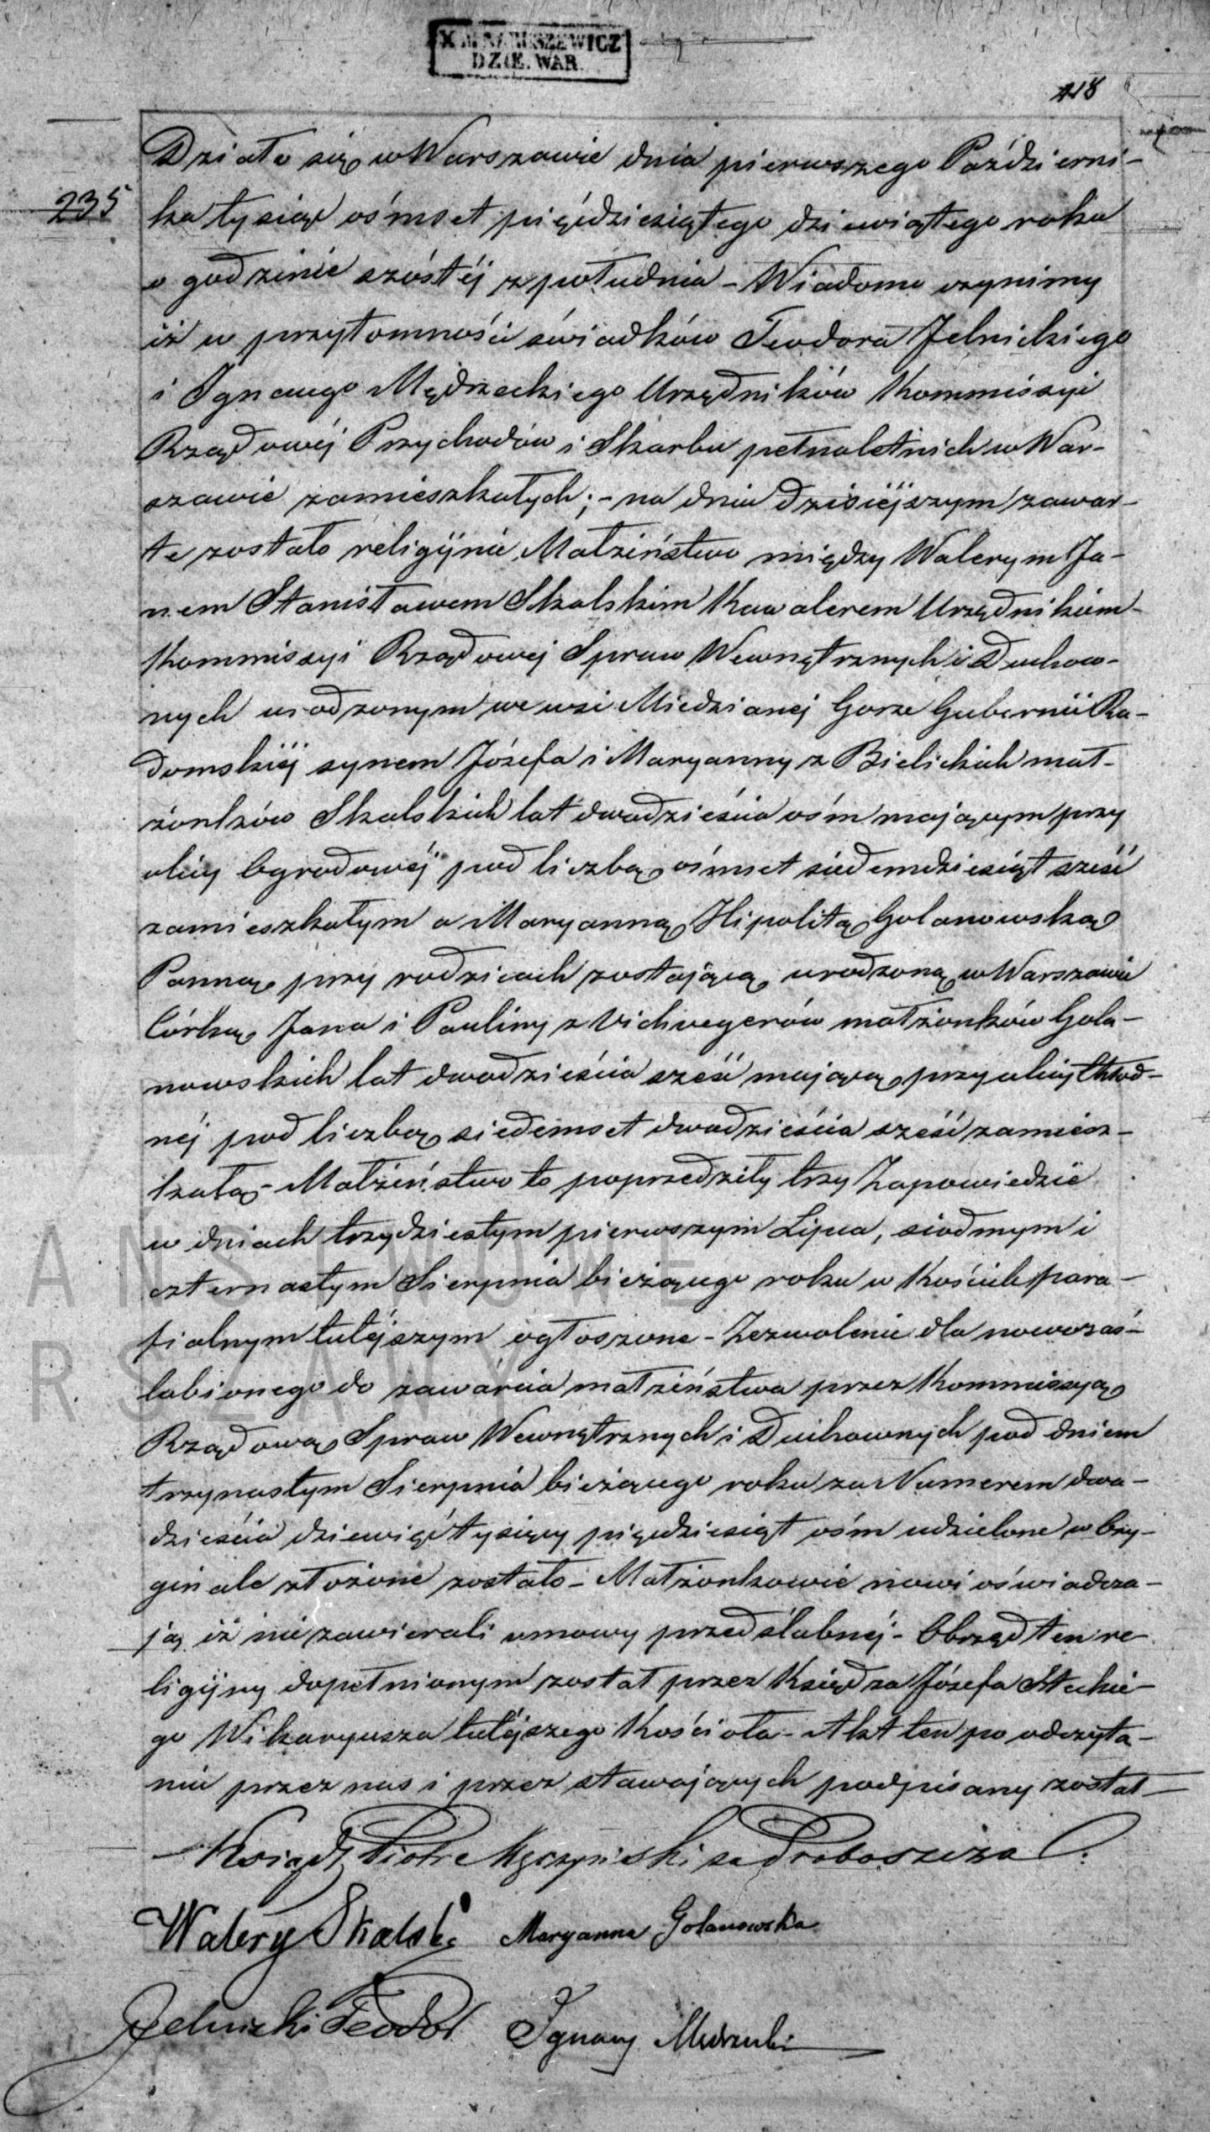 DZIE. WAR.
418
235
Działo się w Warszawie dnia pierwszego Październi-
ka tysiąc ośmset pięćdziesiątego dziewiątego roku
o godzinie szóstéj z południa - Wiadomo czynimy
iż w przytomności świadków Teodora Jelnickiego
i Ignacego Mędrzeckiego Urzędników Kommissyi
Rządowéj Przychodów i Skarbu pełnoletnich w War-
szawie zamieszkałych; - na dniu dzisiéjszym zawar-
te zostało religijnie Małżeństwo między Walerym Ja-
nem Stanisławem Skalskim Kawalerem Urzędnikiem
Kommissyi Rządowej Spraw Wewnętrznych i Duchow-
nych urodzonym we wsi Miedzianej Gorze Gubernii Ra-
domskiéj synem Józefa i Maryanny z Bielickich mał-
żonków Skalskich lat dwadzieścia ośm mającym przy
ulicy Ogrodowéj pod liczbą ośmset siedemdziesiąt sześć
zamieszkałym a Maryanną Hipolitą Golanowską
Panną przy rodzicach zostającą, urodzoną w Warszawie
Córką Jana i Pauliny z Vichwegerów małżonków Gola-
nowskich lat dwadzieścia sześć mającą przy ulicy Chłod-
néj pod liczbą siedemset dwadzieścia sześć zamiesz-
kałą - Małżeństwo to poprzedziły trzy Zapowiedzie
w dniach trzydziestym pierwszym Lipca, siodmym i
czternastym Sierpnia bieżącego roku w Kościele para-
fialnym tutéjszym ogłoszone - Zezwolenie dla nowozaś-
lubionego do zawarcia małżeństwa przez Kommissyą
Rządową Spraw Wewnętrznych i Duchownych pod dniem
trzynastym Sierpnia bieżącego roku za Numerem dwa-
dzieścia dziewięć tysięcy pięćdziesiąt ośm udzielone w Ory-
ginale złożone zostało - Małżonkowie nowi oświadcza-
ją iż nie zawierali umowy przedślubnéj - Obrzęd ten re
ligijny dopełnionym został przez Księdza Józefa Steckie-
go Wikaryusza tutéjszego Kościoła - Akt ten po odczyta-
niu przez nas i przez stawających podpisany został
Ksiądz Piotr Męczyński za Proboszcza
Walery Skalski Maryanna Golanowska
Jelnicki Teodor Ignacy Mędrzecki